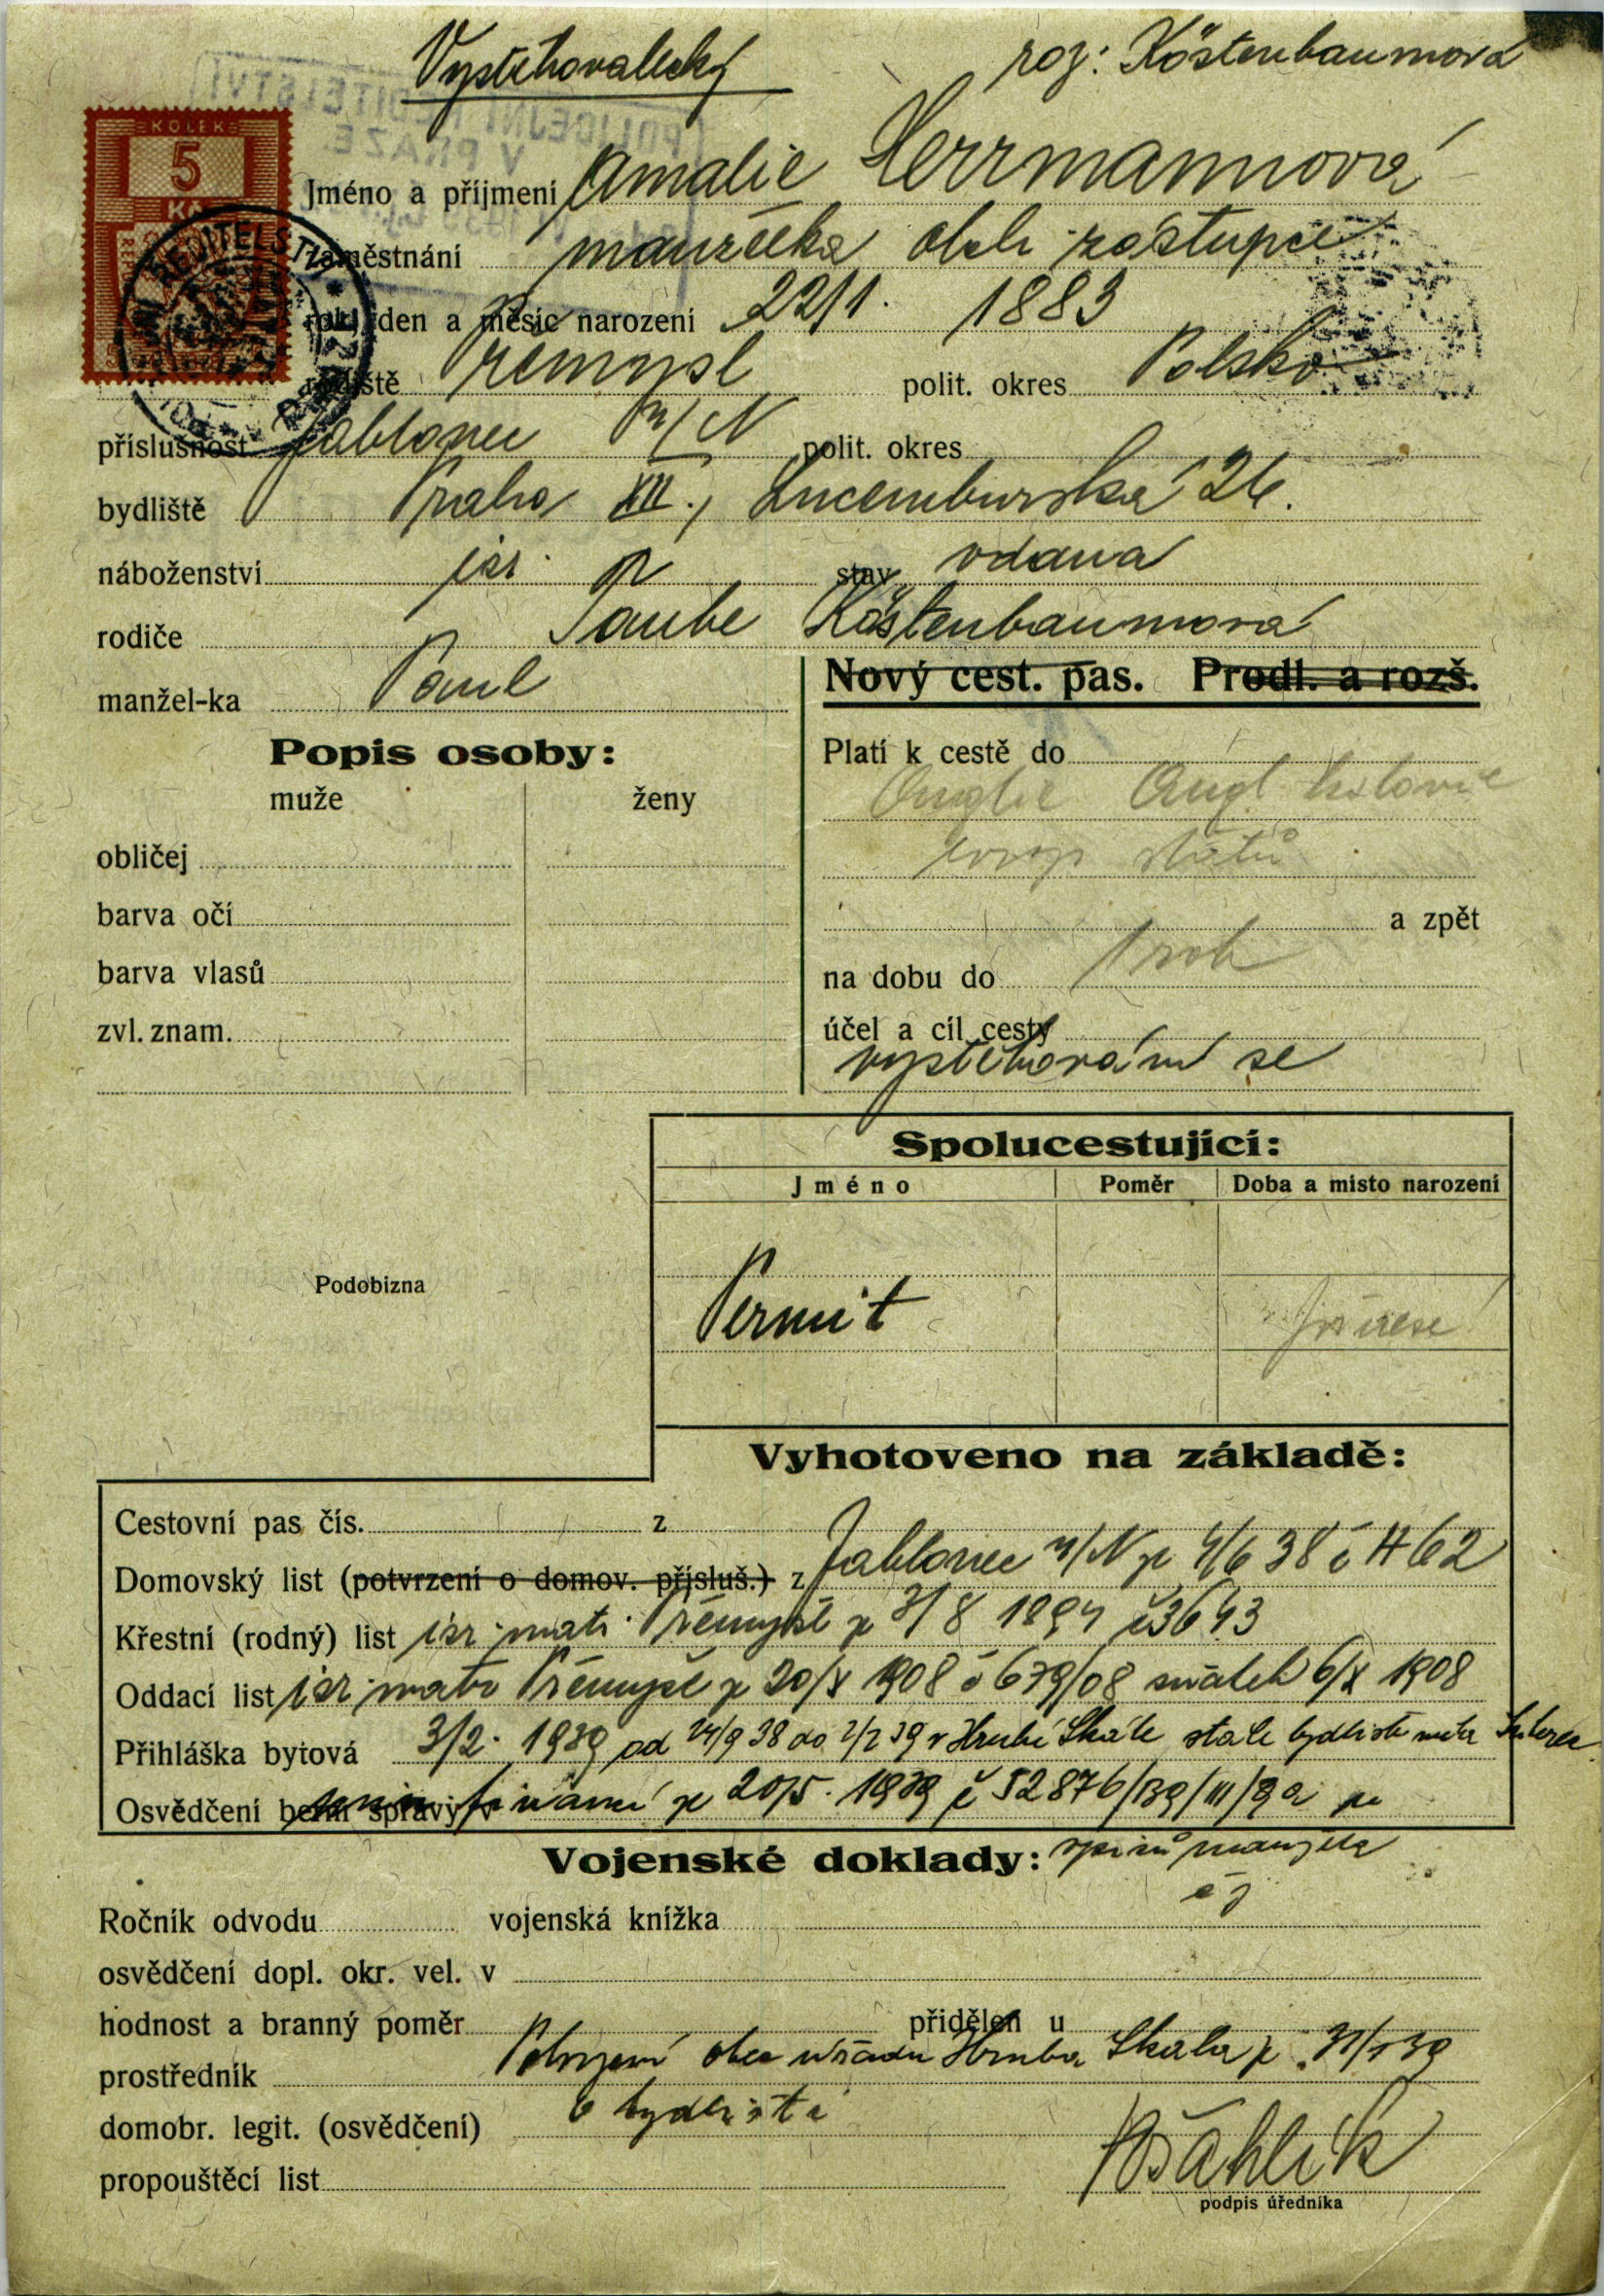 Vystěhovalecký
roz: Köstenbaumová
KOLEK
5
Kč
Jméno a příjmení Amalie Herrmannová
zaměstnání manželka obch. zástupce
rok, den a měsíc narození 22/1. 1883
rodiště Přemysl polit. okres Polsko
příslušnost Jablonec n/N polit. okres
bydliště Praha XII., Lucemburská 26.
náboženství isr. stav vdaná
rodiče Taube Köstenbaumová
manžel-ka Paul
Nový cest. pas. Prodl. a rozš.
Popis osoby:
muže ženy
obličej
barva očí
barva vlasů
zvl. znam.
Platí k cestě do
Anglie Angl kolonie
evrop států
a zpět
na dobu do 1 rok
účel a cíl cesty
vystěhování se
Spolucestující:
Jméno Poměr Doba a místo narození
Permit
Podobizna
Vyhotoveno na základě:
Cestovní pas čís. z
Domovský list (potvrzení o domov. přísluš.) z Jablonec n/N z 4/6 38 č 1462
Křestní (rodný) list isr. mat. Přemyšl z 7/8 1894 č 3643
Oddací list isr matr Přemyšl z 20/X 1908 č 679/08 sňatek 6/X 1908
Přihláška bytová 3/2. 1939 od 24/9 38 do 2/2 39 v Hrubé Skále stále bydliště
Osvědčení berní správy v z 20/5. 1939 č 52876/139/III/
Vojenské doklady:
spisů manžela
čj
Ročník odvodu vojenská knížka
osvědčení dopl. okr. vel. v
hodnost a branný poměr přidělen u
prostředník Potvrzení obec úřadu Hrubá Skála z 31/1 39
domobr. legit. (osvědčení) o bydlišti
propouštěcí list
podpis úředníka